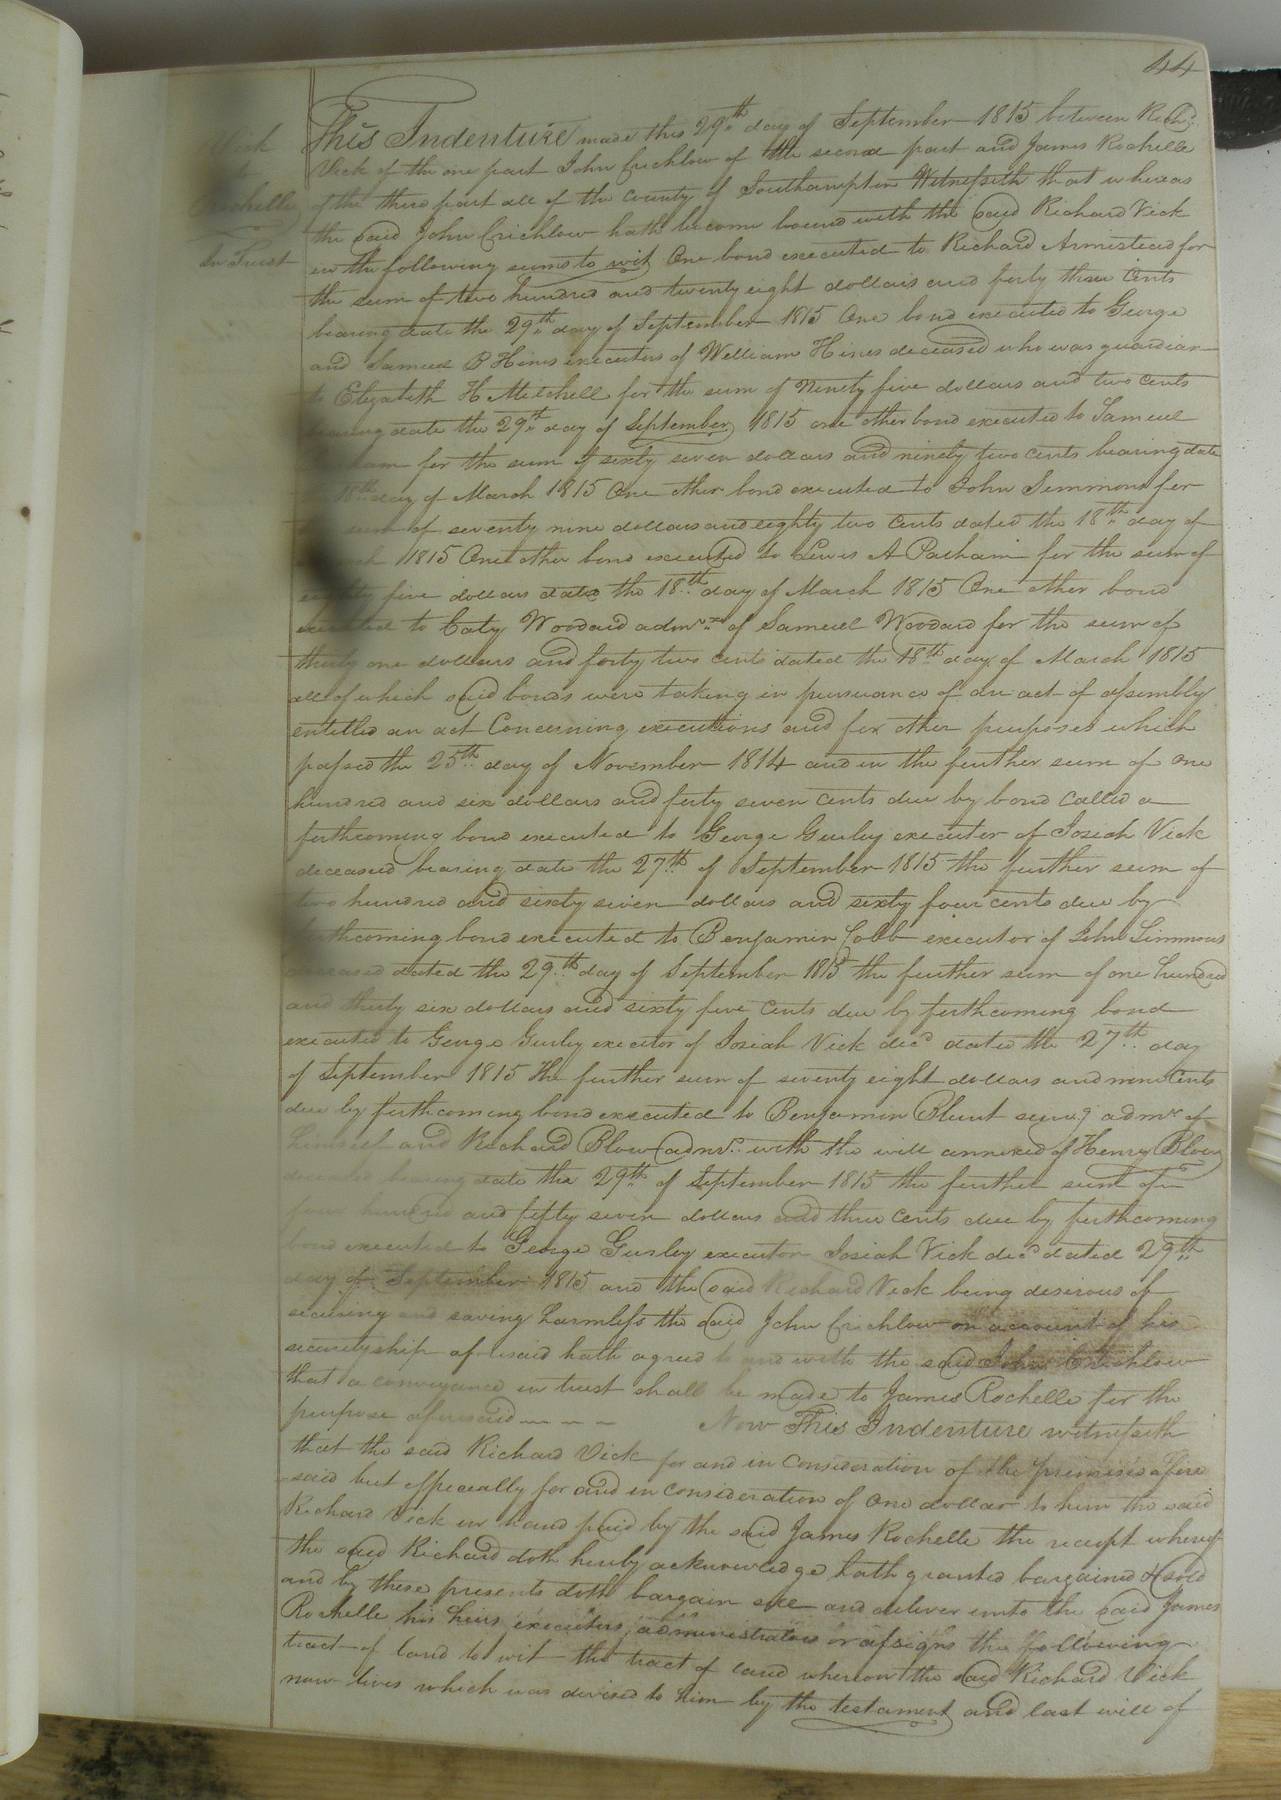 44
Vick
Rochelle
In Trust
This Indenture made this 29th day of September 1815 between Richd.
Vick of the one part John Crichlow of the second part and James Rochelle
of the third part all of the County of Southampton Witnesseth that whereas
the said John Crichlow hath become bound with the said Richard Vick
in the following sums to wit One bond executed to Richard Armistead for
the sum of two hundred and twenty eight dollars and forty three Cents
bearing date the 29th day of September 1815 One bond executed to George
and Samuel B Hines executors of William Hines deceased who was guardian
to Elizabeth H Mitchell for the sum of Ninety five dollars and two Cents
bearing date the 29th day of September 1815 one other bond executed to Samuel
for the sum of sixty seven dollars and ninety two cents bearing date
18th day of March 1815 One other bond executed to John Simmons for
sum of seventy nine dollars and eighty two Cents dated the 18th day of
1815 One other bond executed to Lewis A Pacham for the sum of
five dollars date the 18th day of March 1815 One other bond
executed to Caty Woodard admx of Samuel Woodard for the sum of
thirty one dollars and forty two cents dated the 18th day of March 1815
all of which said bonds were taking in pursuance of an act of assembly
entitled an act Concerning executions and for other purposes which
passed the 25th day of November 1814 and in the further sum of one
hundred and six dollars and forty seven cents due by bond called a
forthcoming bond executed to George Gurley executor of Josiah Vick
deceased bearing date the 27th of September 1815 the further sum of
two hundred and sixty seven dollars and sixty four cents due by
forthcoming bond executed to Benjamin Cobb executor of John Simmons
deceased dated the 29th day of September 1815 the further sum of one hundred
and thirty six dollars and sixty five Cents due by forthcoming bond
executed to George Gurley executor of Josiah Vick decd dated the 27th day
of September 1815 the further sum of seventy eight dollars and nine Cents
due by forthcoming bond executed to Benjamin Blunt admr of
and Richard Blow admr. with the will annexed of Henry Blow
deceased bearing date the 29th of September 1815 the further sum of
four hundred and fifty seven dollars and three Cents due by forthcoming
bond executed to George Gurley executor Josiah Vick decd dated 29th
day of September 1815 and the said Richard Vick being desirous of
securing and saving harmless the said John Crichlow on account of his
securityship aforesaid hath agreed to and with the said John Crichlow
that a conveyance in trust shall be made to James Rochelle for the
purpose aforesaid ~ ~ ~ Now This Indenture witnesseth
that the said Richard Vick for and in Consideration of the premises afore
said but especially for and in consideration of One dollar to him the said
Richard Vick in hand paid by the said James Rochelle the receipt whereof
the said Richard doth hereby acknowledge hath granted bargained & sold
and by these presents doth bargain sell and deliver unto the said James
Rochelle his heirs executors administrators or assigns the following
tract of land to wit the tract of land whereon the said Richard Vick
now lives which was devised to him by the testament and last will of